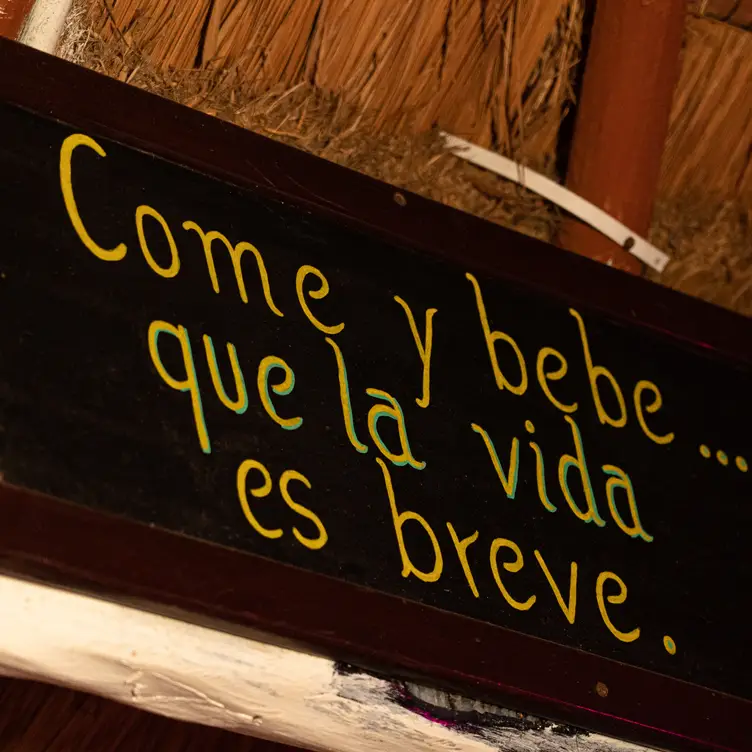 Come y bebe...
que la vida
es breve.